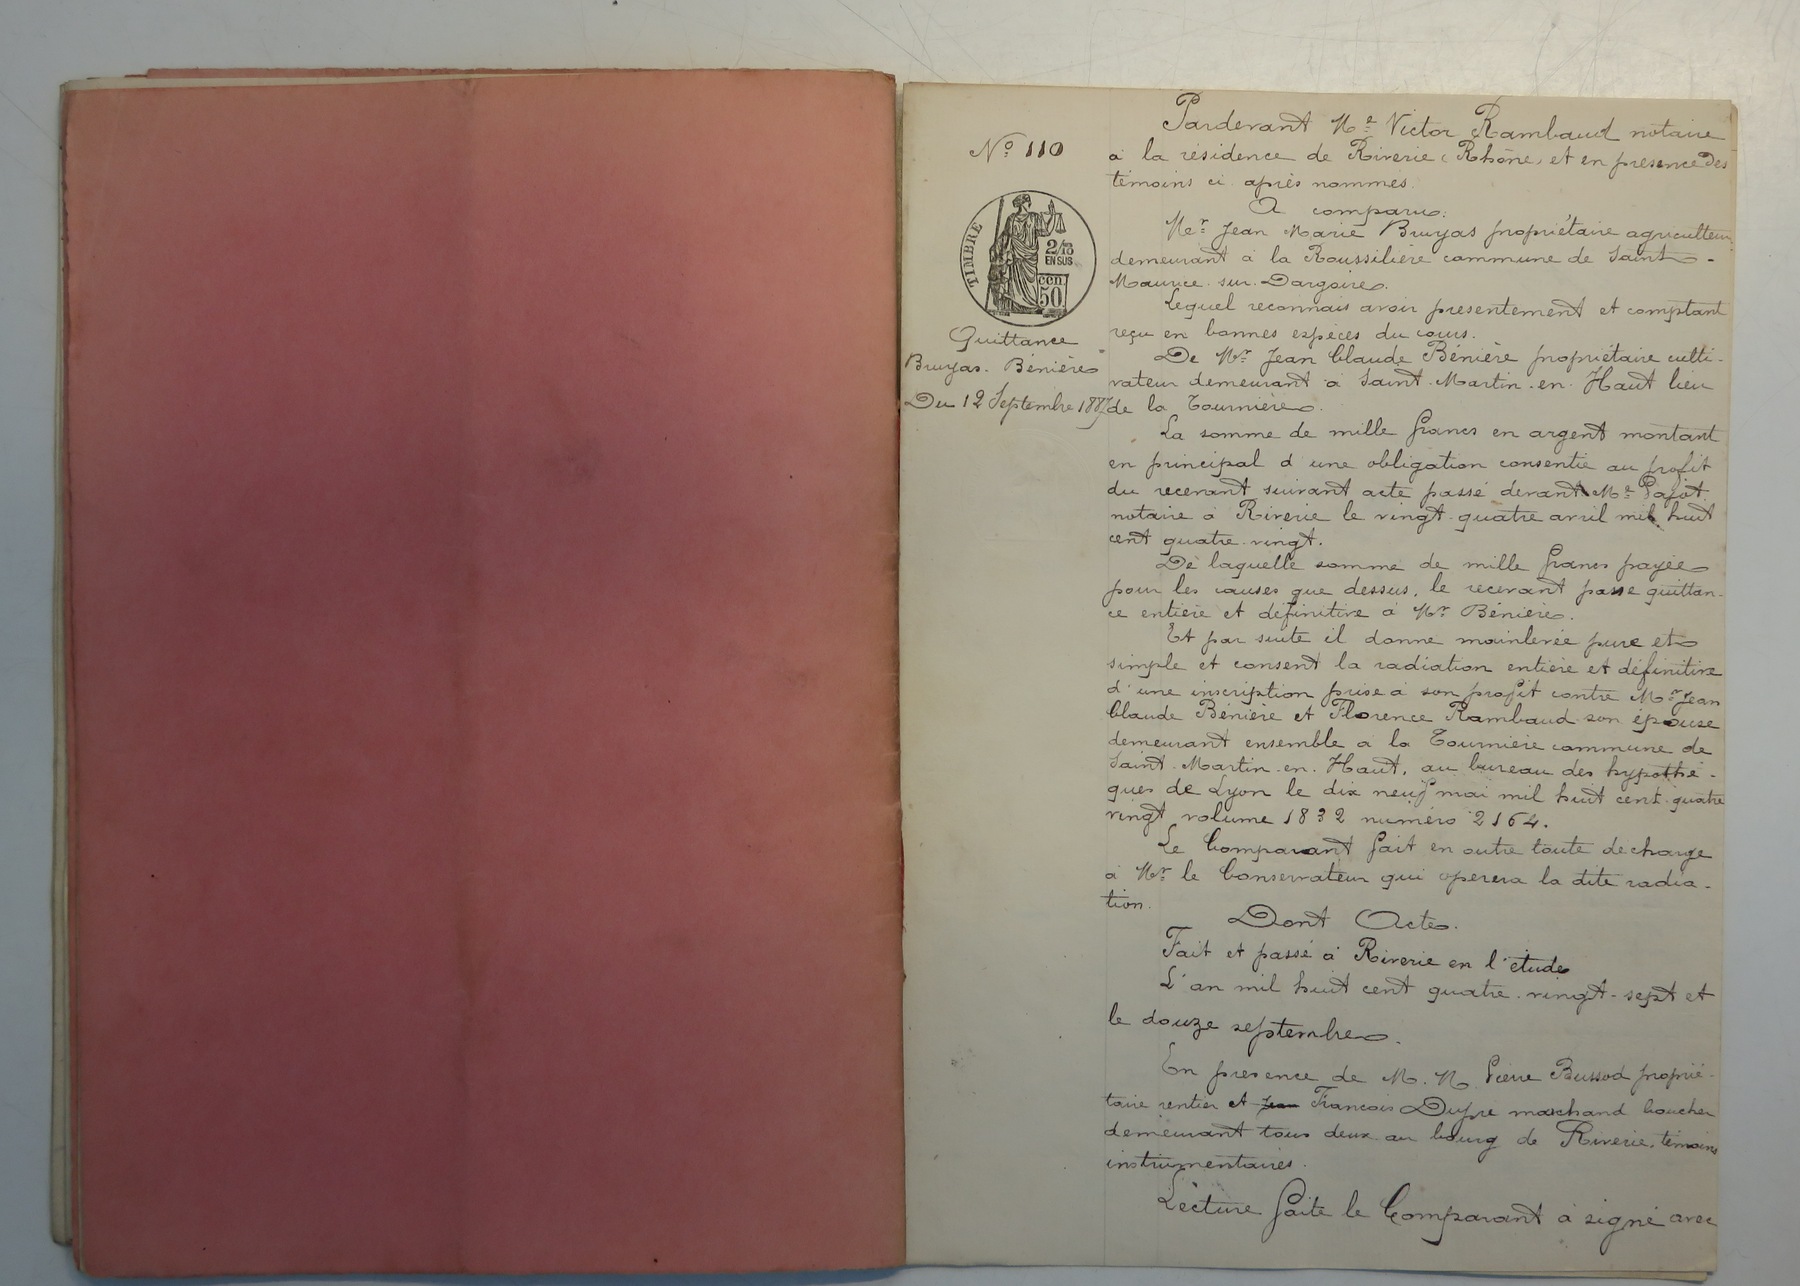 N° 110
TIMBRE
2/10
EN SUS
cen.
50
Quittance
Bruyas. Bénière
Du 12 Septembre 1887
Pardevant Me Victor Rambaud notaire
à la résidence de Riverie (Rhône) et en présence des
témoins ci après nommés.
A comparu.
Mer Jean Marie Bruyas propriétaire agriculteur
demeurant à la Roussilière commune de Saint-
Maurice-sur-Dargoire.
Lequel reconnais avoir présentement et comptant
reçu en bonnes espèces du cours.
De Mr Jean Claude Bénière propriétaire culti-
vateur demeurant à Saint-Martin-en-Haut lieu
de la Tournière.
La somme de mille francs en argent montant
en principal d'une obligation consentie au profit
du recevant suivant acte passé devant Me Pajot
notaire à Riverie le vingt-quatre avril mil huit
cent quatre-vingt.
De laquelle somme de mille francs payée
pour les causes que dessus, le recevant passe quittan-
ce entière et définitive à Mr Bénière.
Et par suite il donne mainlevée pure et
simple et consent la radiation entière et définitive
d'une inscription prise à son profit contre Mr Jean
Claude Bénière et Florence Rambaud son épouse
demeurant ensemble à la Tournière commune de
Saint-Martin-en-Haut, au bureau des hypothè-
ques de Lyon le dix neuf mai mil huit cent quatre
vingt volume 1832 numéro 2164.
Le Comparant fait en outre toute décharge
à Mr le Conservateur qui opérera la dite radia-
tion.
Dont Acte.
Fait et passé à Riverie en l'étude
L'an mil huit cent quatre-vingt-sept et
le douze septembre.
En présence de M.M. Pierre Bussod proprié-
taire rentier et Jean François Dupré marchand boucher
demeurant tous deux au bourg de Riverie, témoins
instrumentaires.
Lecture faite le Comparant à signé avec